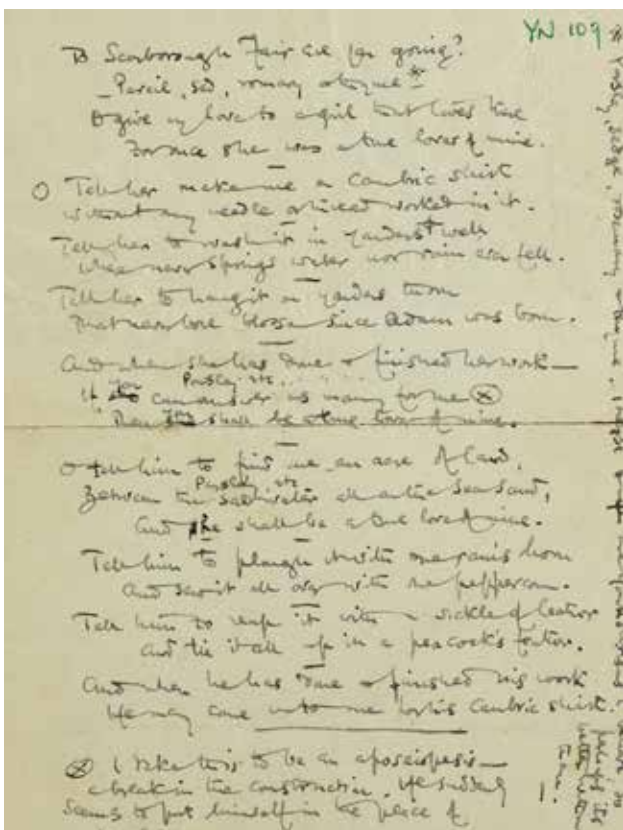 YN 109
To Scarborough Fair are you going?
Parcil, sed, romary & thyme *
O give my love to a girl that lives there
For once she was a true lover of mine.
O Tell her make me a cambric shirt
without any needle or thread worked in it.
Tell her to wash it in yanders well
where never spring water nor rain ever fell.
Tell her to hang it on yanders thorn
That never bore blossom since Adam was born.
And when she has done & finished her work
Parsley etc.
If you can answer as many for me ⊗
Then you shall be a true lover of mine.
O tell him to find me an acre of land,
Parsley etc
Between the saltwater & the sea sand,
And he shall be a true lover of mine.
Tell him to plough it with one ram's horn
And sow it all over with one peppercorn.
Tell him to reap it with a sickle of leather
And tie it all up in a peacock's feather.
And when he has done & finished his work
He may come unto me for his cambric shirt.
⊗ I take this to be an aposeiopesis —
a break in the construction. He suddenly
seems to put himself in the place of
* Parsley, sedge, rosemary & thyme. I
perhaps it's
better